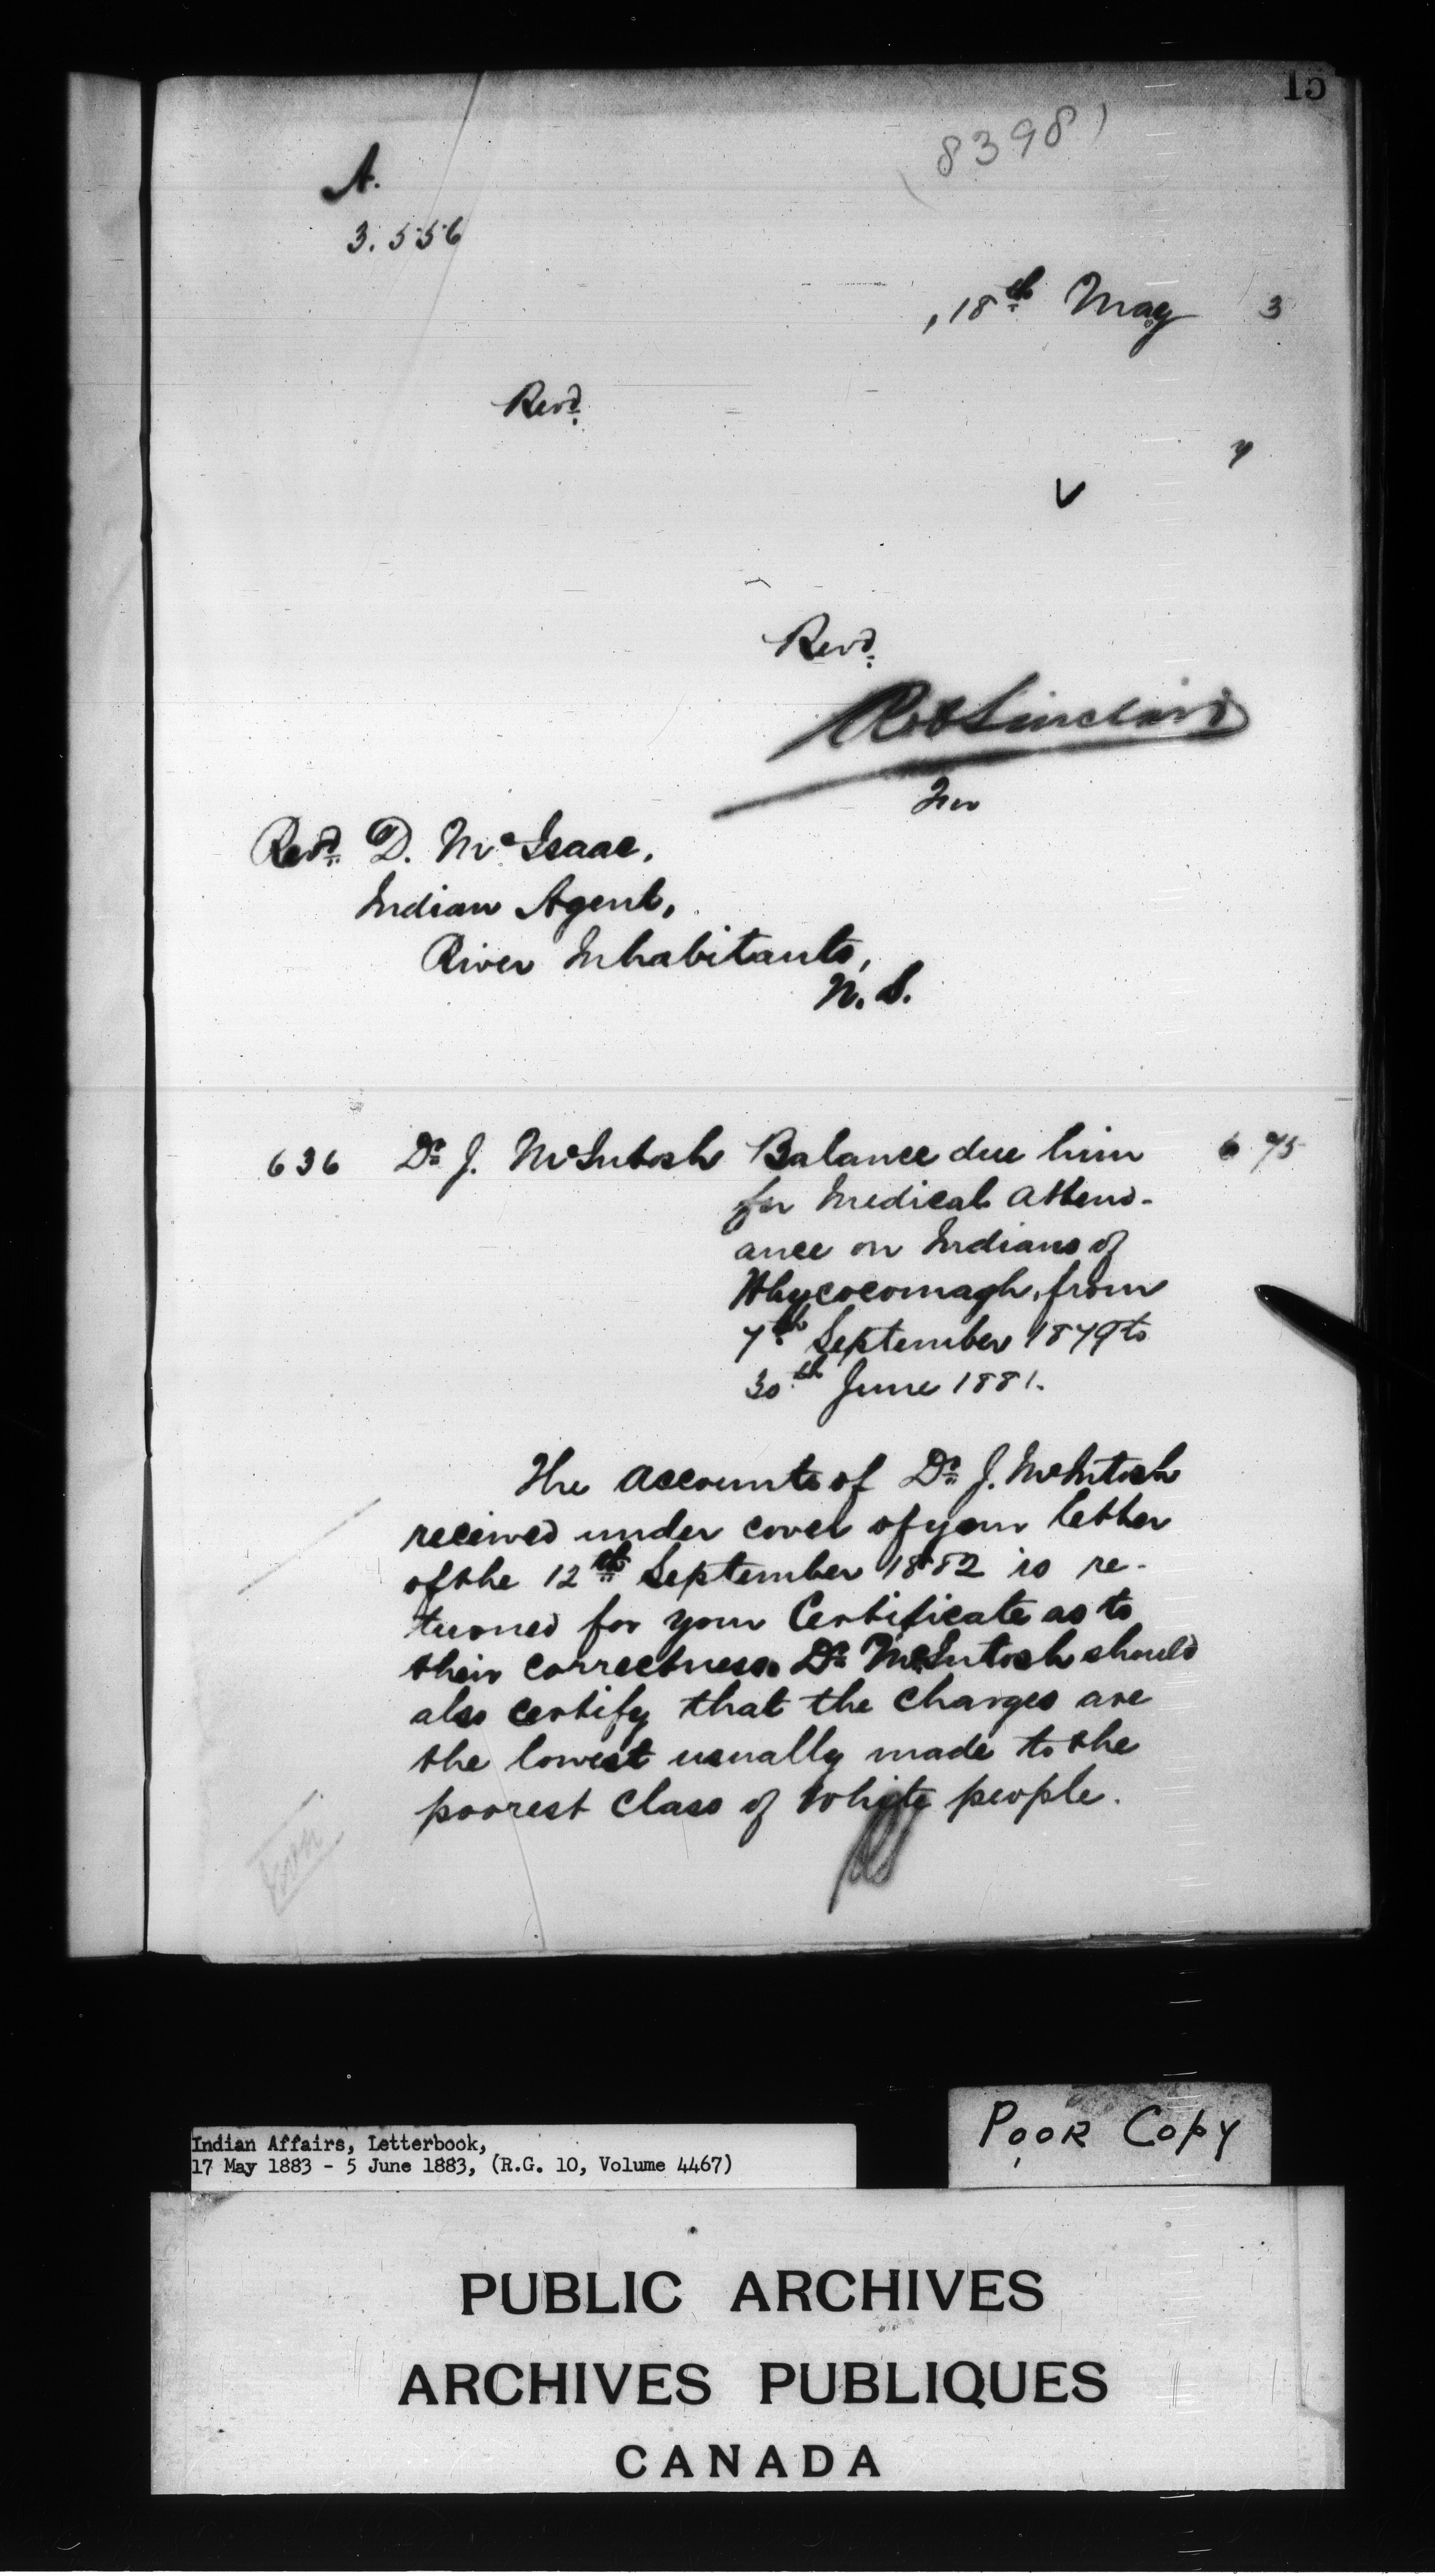 15
(8398)
A.
3.556
, 18th May 3
Revd.
Revd.
Rob Sinclair
For
Revd. D. McIsaac,
Indian Agent,
River Inhabitants,
N. S.
636 Dr. J. McIntosh Balance due him 6 75
for Medical Attend-
ance on Indians of
Whycocomagh, from
7th September 1879 to
30th June 1881.
The accounts of Dr. J. McIntosh
received under cover of your letter
of the 12th September 1882 is re-
turned for your Certificate as to
their correctness. Dr. McIntosh should
also certify that the charges are
the lowest usually made to the
poorest class of White people.
RS
Indian Affairs, Letterbook,
17 May 1883 - 5 June 1883, (R.G. 10, Volume 4467)
Poor Copy
PUBLIC ARCHIVES
ARCHIVES PUBLIQUES
CANADA